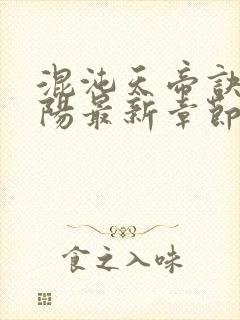 混沌天帝诀
陽最新章節
食之入味